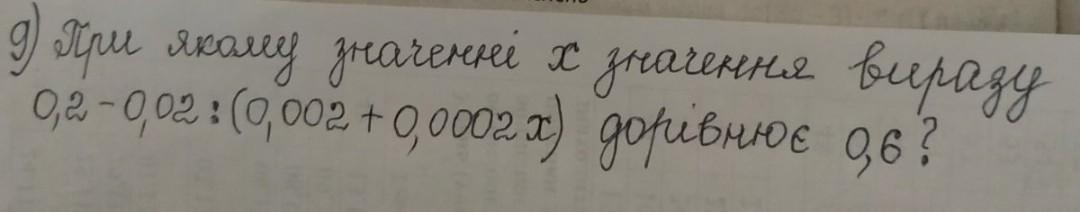 9) При якому значенні x значення виразу
0,2-0,02:(0,002+0,0002x) дорівнює 0,6?